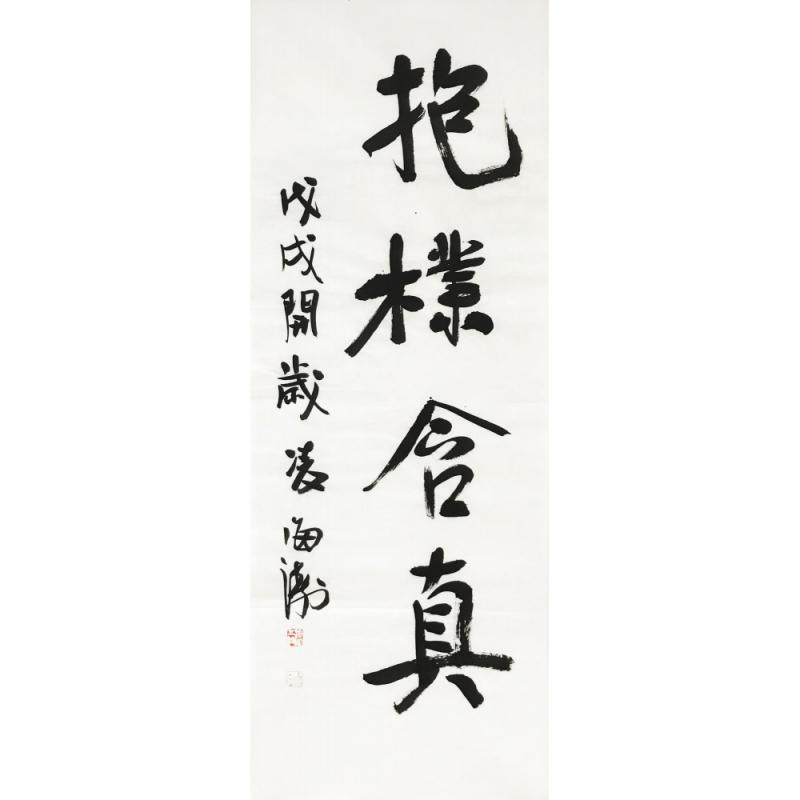 抱樸含真
戊戌開歲凌海濤